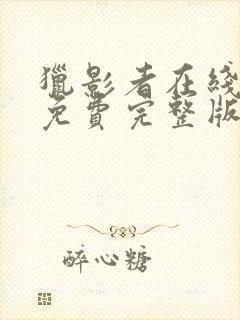 獵影者在綫
免費完整版
醉心糖